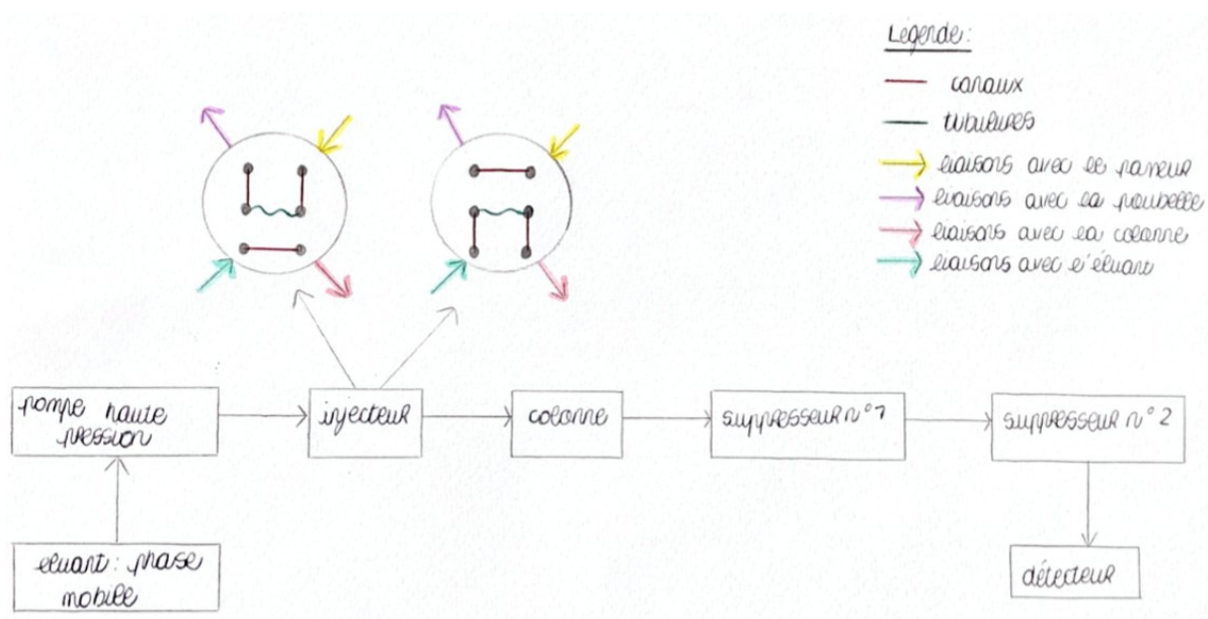 Légende :
canaux
tubulures
liaisons avec le passeur
liaisons avec la poubelle
liaisons avec la colonne
liaisons avec l'éluant
pompe haute
pression
injecteur
colonne
suppresseur n°1
suppresseur n°2
éluant : phase
mobile
détecteur